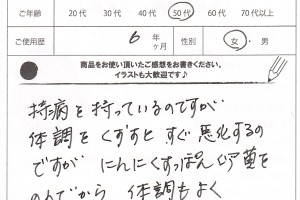 ご年齢 20代 30代 40代 50代 60代 70代以上
ご使用歴 6年 ヶ月 性別 女・男
商品をお使い頂いたご感想をお書きください。
イラストも大歓迎です♪
持病を持っているのですが
体調をくずすと すぐ悪化するの
ですが にんにくすっぽん
のんでから 体調もよく